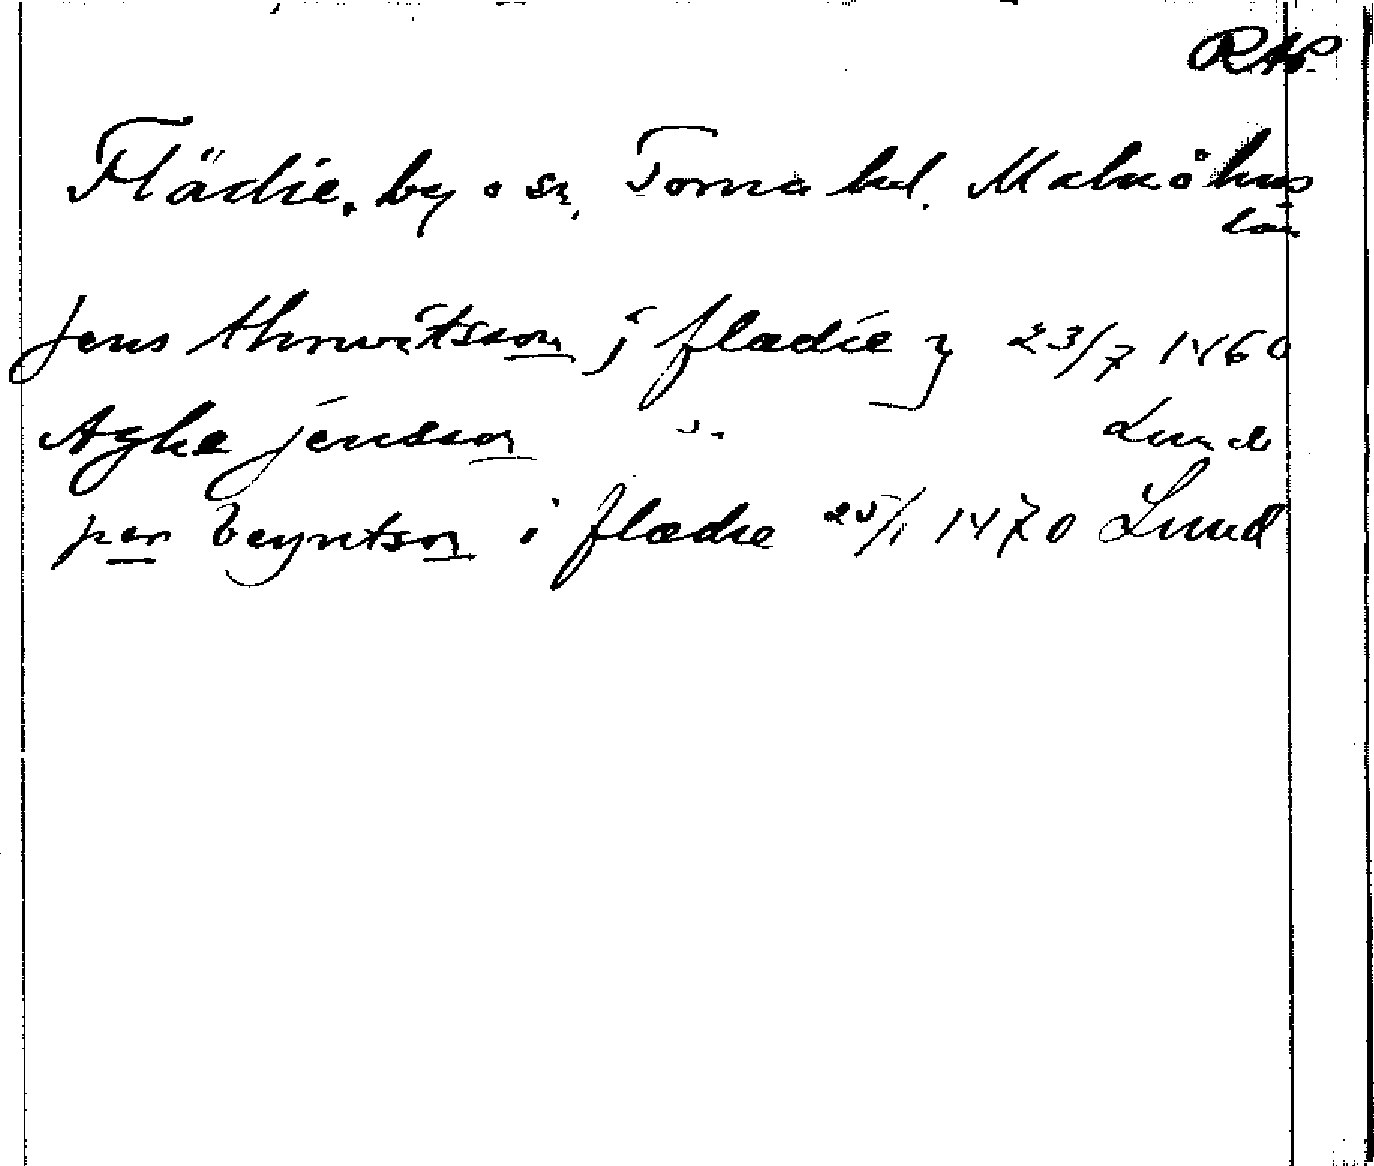 RAP
Flädie, by o sn, Torna hd. Malmöhus
län
Jens thrwetsson j flædie 23/7 1460
Aghe jensson " Lund
per beyntson i flædie 25/1 1470 Lund